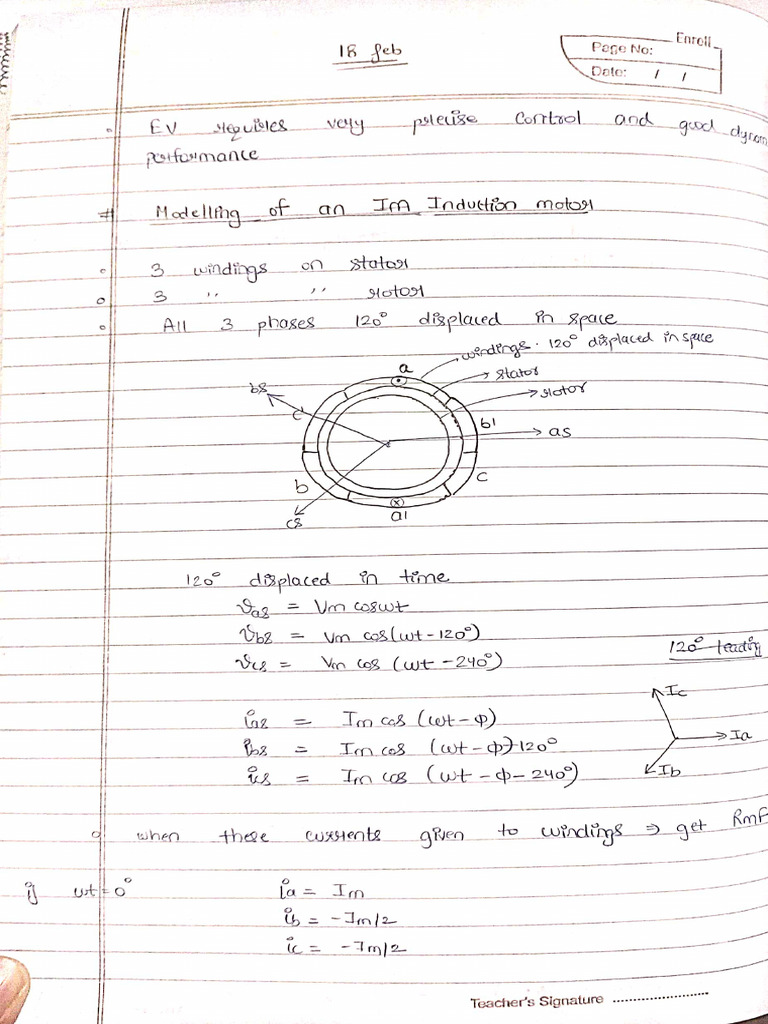 18 feb
Enroll
Page No:
Date: / /
EV requires very precise control and good dynam
performance
# Modelling of an Im Induction motor
3 windings on stator
3 " " rotor
All 3 phases 120° displaced in space
windings. 120° displaced in space
a
stator
rotor
bs
c'
b'
as
b
c
cs
a'
120° displaced in time
vas = Vm coswt
vbs = Vm cos(wt-120°)
vcs = Vm cos (wt -240°)
120° leading
ias = Im cos (wt-φ)
ibs = Im cos (wt-φ)-120°
ics = Im cos (wt - φ - 240°)
Ic
Ia
Ib
when these currents given to windings ⇒ get RmF
if wt=0° ia = Im
ib = -Im/2
ic = -Im/2
Teacher's Signature ........................